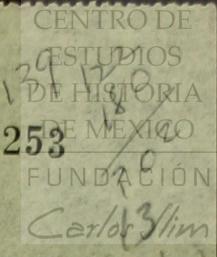 CENTRO DE
ESTUDIOS
DE HISTORIA
DE MÉXICO
FUNDACIÓN
Carlos Slim
139
180
18
253
13